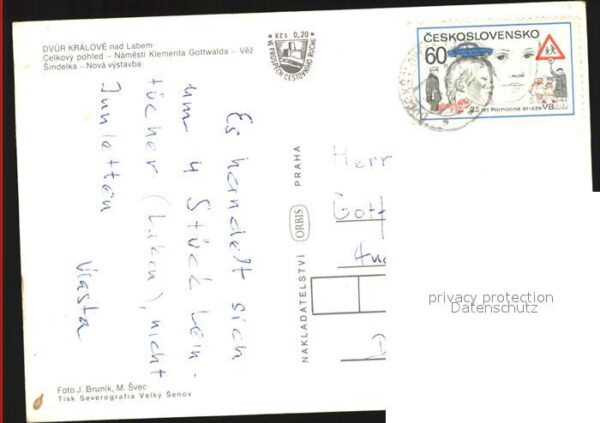 DVŮR KRÁLOVÉ nad Labem
Celkový pohled – Náměstí Klementa Gottwalda – Věž
Šindelka – Nová výstavba
Kčs 0,20
ČESKOSLOVENSKO
60
25 let Pomocné stráže VB
Es handelt sich
um 4 Stück Lein-
tücher (Laken), nicht
Vlasta
NAKLADATELSTVÍ ORBIS PRAHA
Herr
Gott
privacy protection
Datenschutz
Foto J. Bruník, M. Švec
Tisk Severografia Velký Šenov